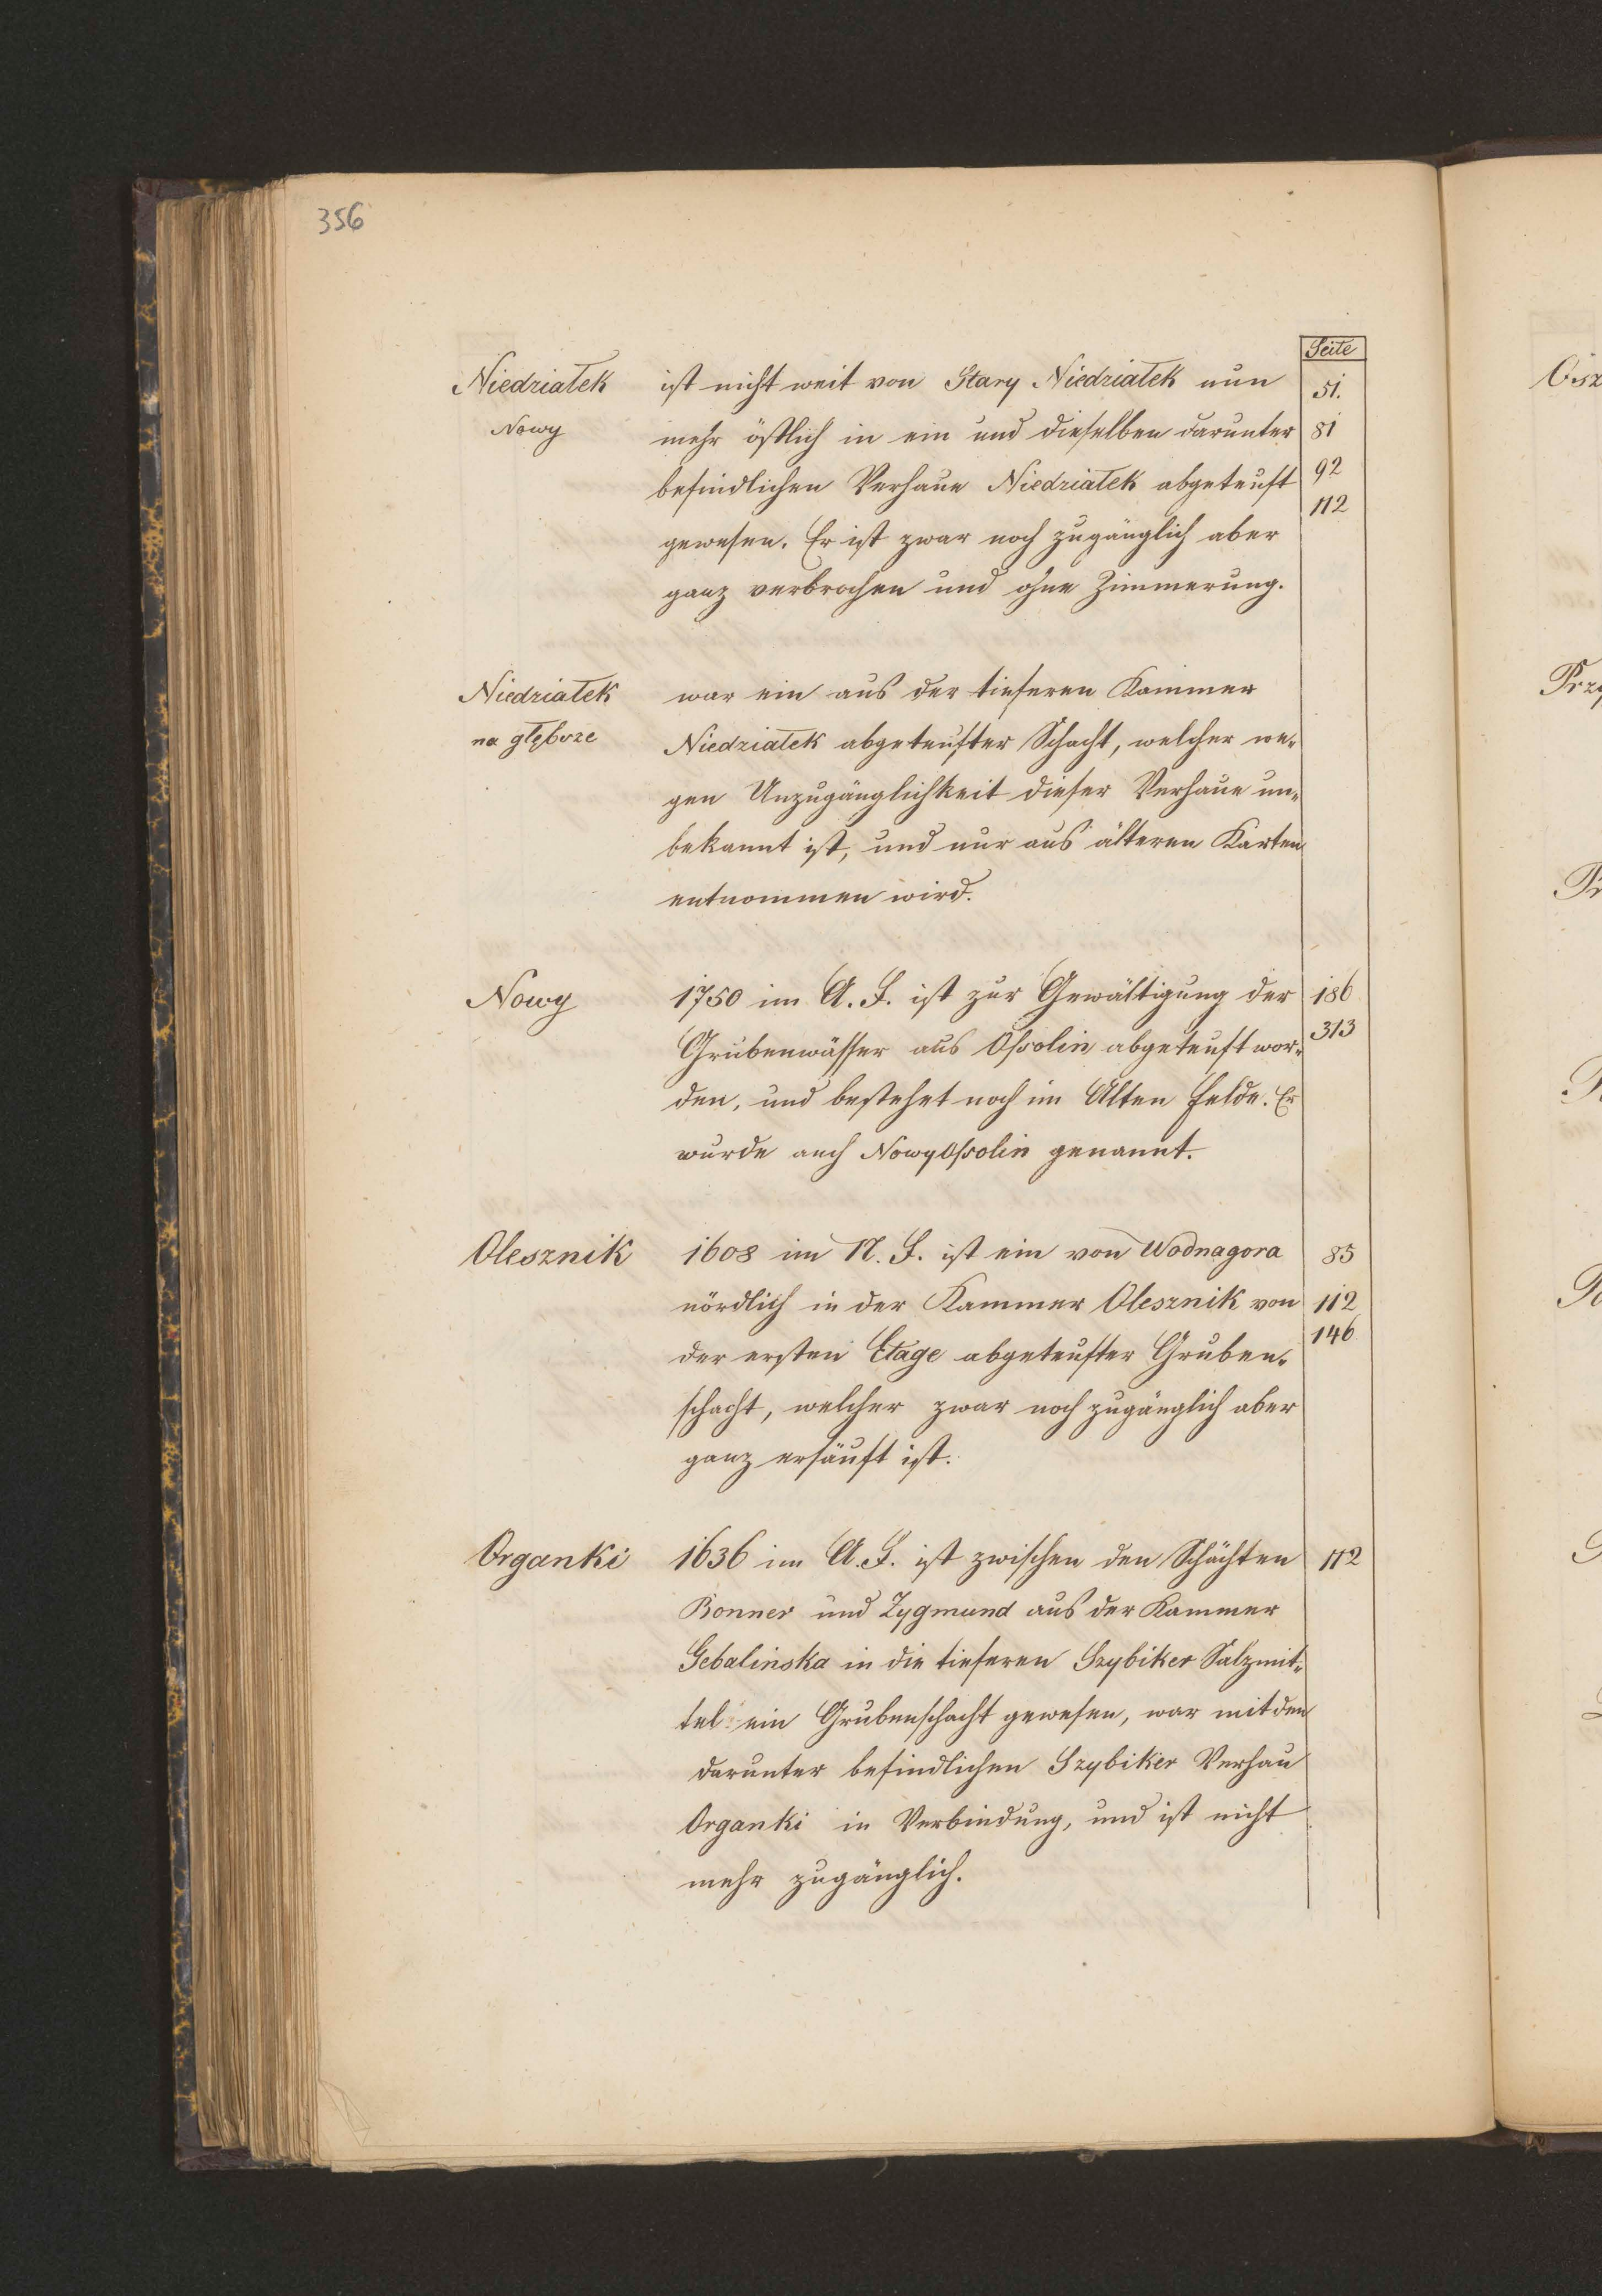 356
Seite
Niedziałek ist nicht weit von Stary Niedziałek nun 51.
Nowy mehr östlich in ein und dieselben darunter 81
befindlichen Verhaue Niedziałek abgeteuft 92
112
gewesen. Er ist zwar noch zugänglich aber
ganz verbrochen und ohne Zimmerung.
Niedziałek war ein aus der tieferen Kammer
na głębsze Niedziałek abgeteufter Schacht, welcher we-
gen Unzugänglichkeit dieser Verhaue un-
bekannt ist, und nur aus älteren Karten
entnommen wird.
Nowy 1750 im A. F. ist zur Gewältigung der 186
Grubenwässer aus Ossolin abgeteuft wor- 313
den, und bestehet noch im Alten Felde. Er
wurde auch Nowy Ossolin genannt.
Olesznik 1608 im N. F. ist ein von Wodnagora 85
nördlich in der Kammer Olesznik von 112
der ersten Etage abgeteufter Gruben- 146
schacht, welcher zwar noch zugänglich aber
ganz ersäuft ist.
Organki 1636 im A. F. ist zwischen den Schächten 112
Bonner und Zygmund aus der Kammer
Gebalinska in die tieferen Szybiker Salzmit-
tel ein Grubenschacht gewesen, war mit den
darunter befindlichen Szybiker Verhau
Organki in Verbindung, und ist nicht
mehr zugänglich.